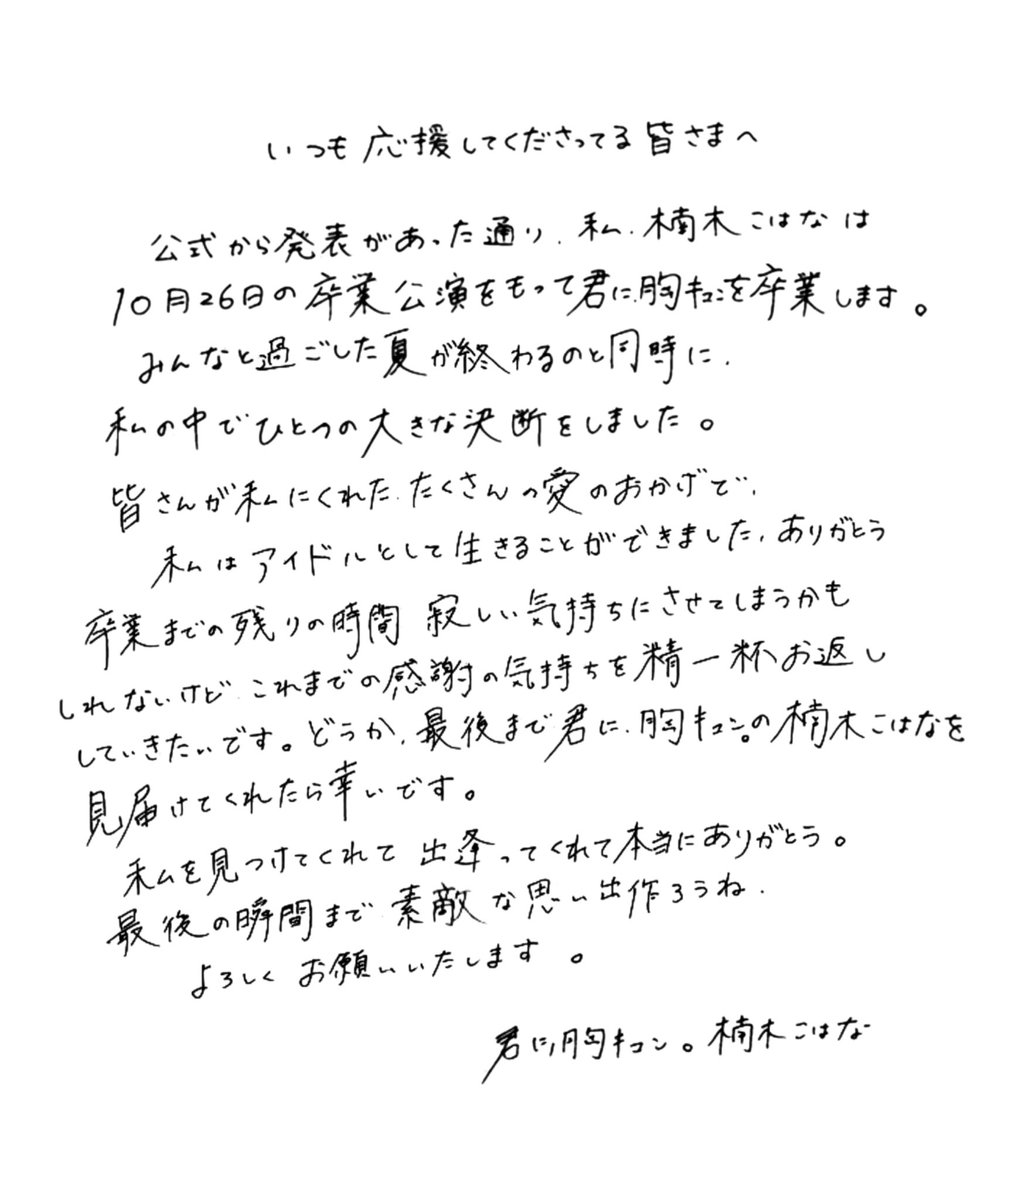 いつも応援してくださってる皆さまへ
公式から発表があった通り、私、楠木こはなは
10月26日の卒業公演をもって君に、胸キュンを卒業します。
みんなと過ごした夏が終わるのと同時に、
私の中でひとつの大きな決断をしました。
皆さんが私にくれた、たくさんの愛のおかげで、
私はアイドルとして生きることができました、ありがとう
卒業までの残りの時間 寂しい気持ちにさせてしまうかも
しれないけど、これまでの感謝の気持ちを精一杯お返し
していきたいです。どうか、最後まで君に、胸キュン。の楠木こはなを
見届けてくれたら幸いです。
私を見つけてくれて 出逢ってくれて本当にありがとう。
最後の瞬間まで 素敵な思い出作ろうね、
よろしくお願いいたします。
君に、胸キュン。楠木こはな